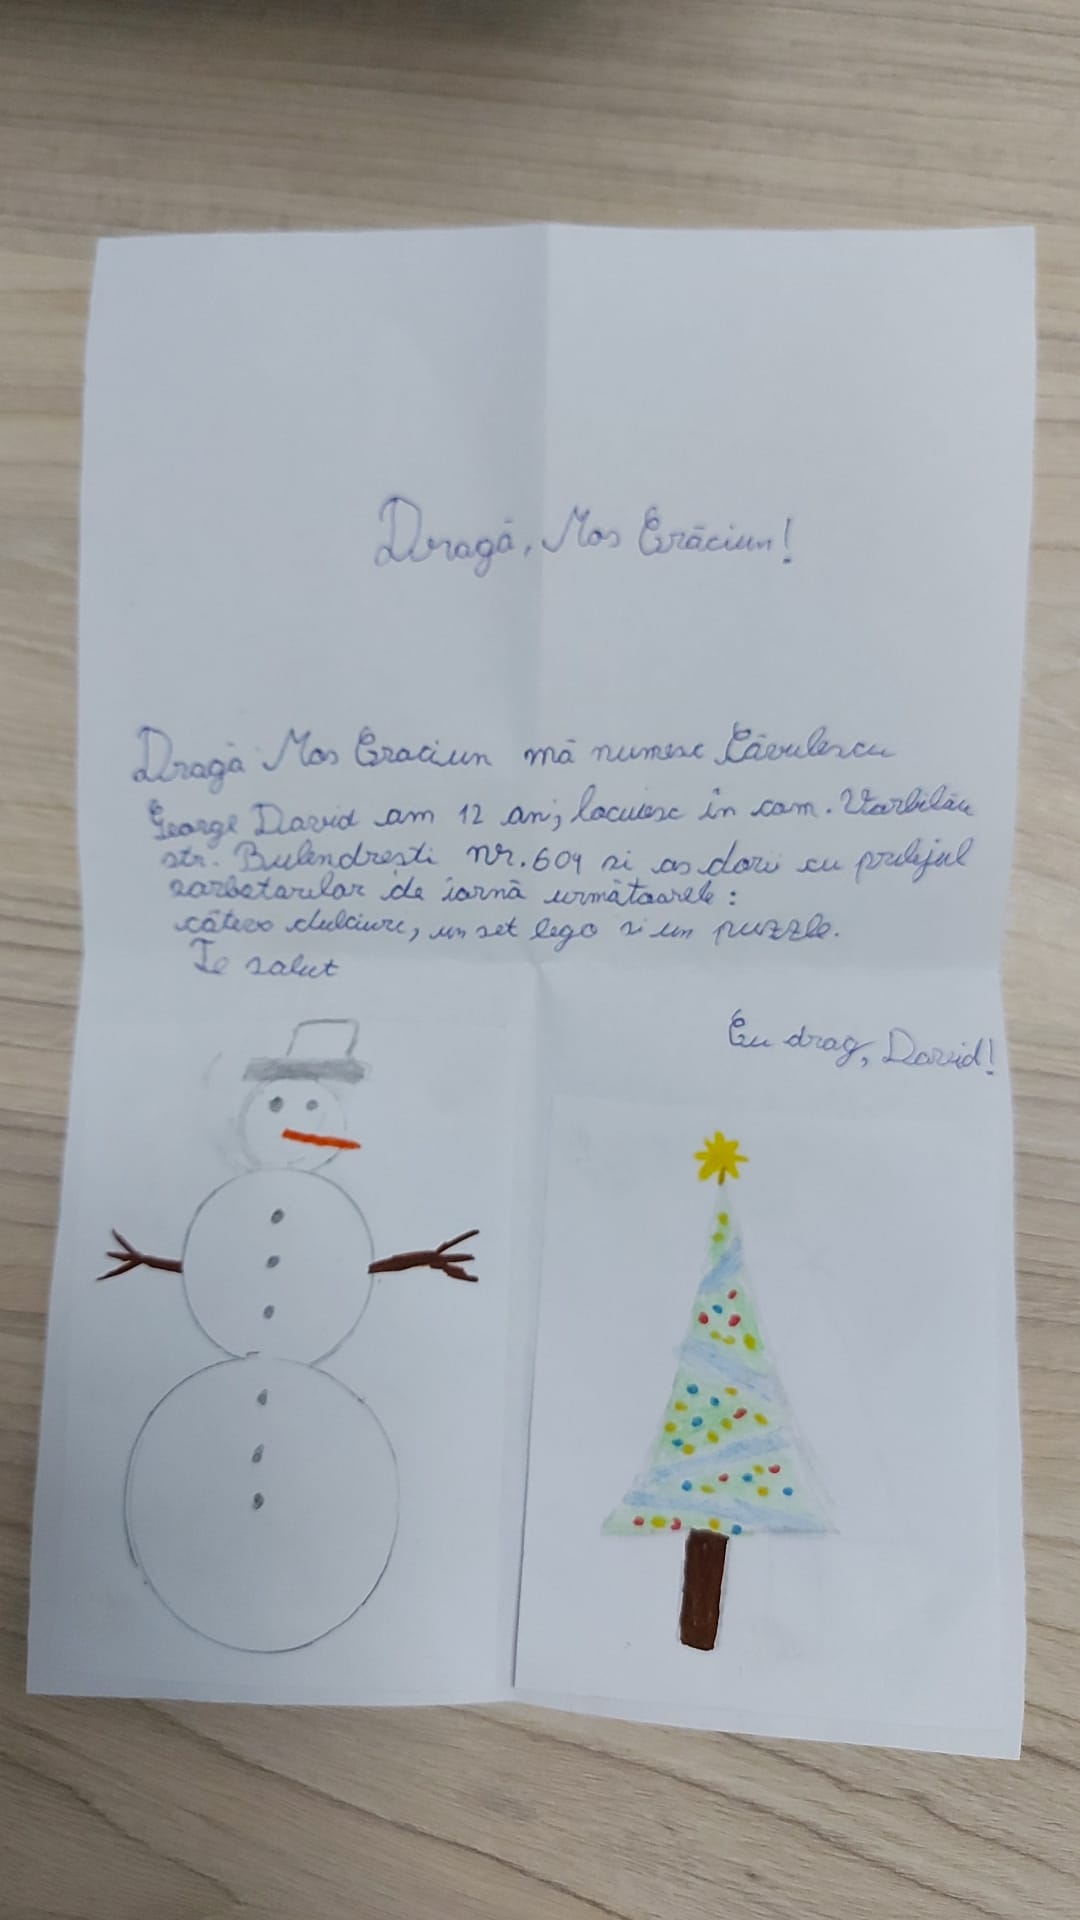 Dragă, Mos Crăciun!
Dragă Mos Craciun mă numesc Căvulescu
George David am 12 ani, locuiesc în com. Varbilău
str. Bulendresti nr. 609 si as dori cu prilejul
sarbatorilor de iarnă următoarele:
câteva dulciuri, un set lego si un puzzle.
Te salut
Cu drag, David!